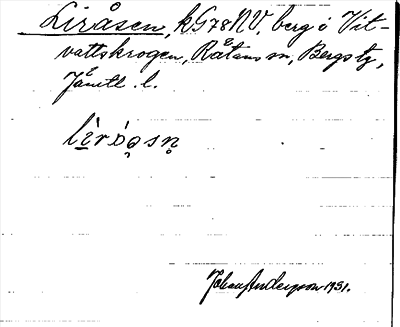 Liråsen, kG78NV, berg i Vit-
vattskrogen, Rätans sn, Bergs tg,
Jämtl. l.
Johan Anderson 1931.